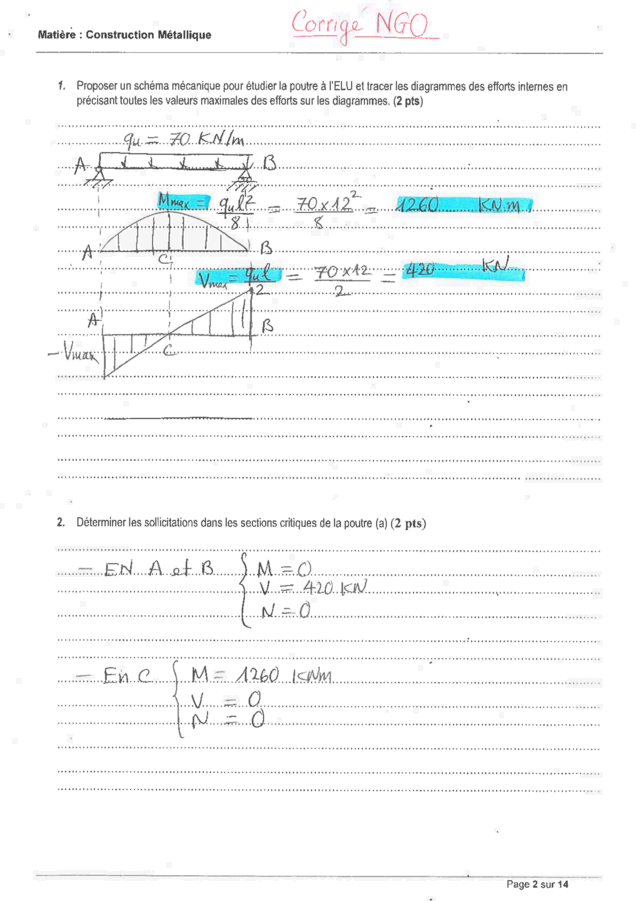 Corrige NGO
Matière : Construction Métallique
1. Proposer un schéma mécanique pour étudier la poutre à l'ELU et tracer les diagrammes des efforts internes en
précisant toutes les valeurs maximales des efforts sur les diagrammes. (2 pts)
qu = 70 KN/m
A B
Mmax = qu l²/8 = 70x12²/8 = 1260 KN.m
A C B
Vmax = qu l/2 = 70x12/2 = 420 KN
A B
- Vmax C
2. Déterminer les sollicitations dans les sections critiques de la poutre (a) (2 pts)
- EN A et B { M = 0
V = 420 KN
N = 0
- En C { M = 1260 KNm
V = 0
N = 0
Page 2 sur 14